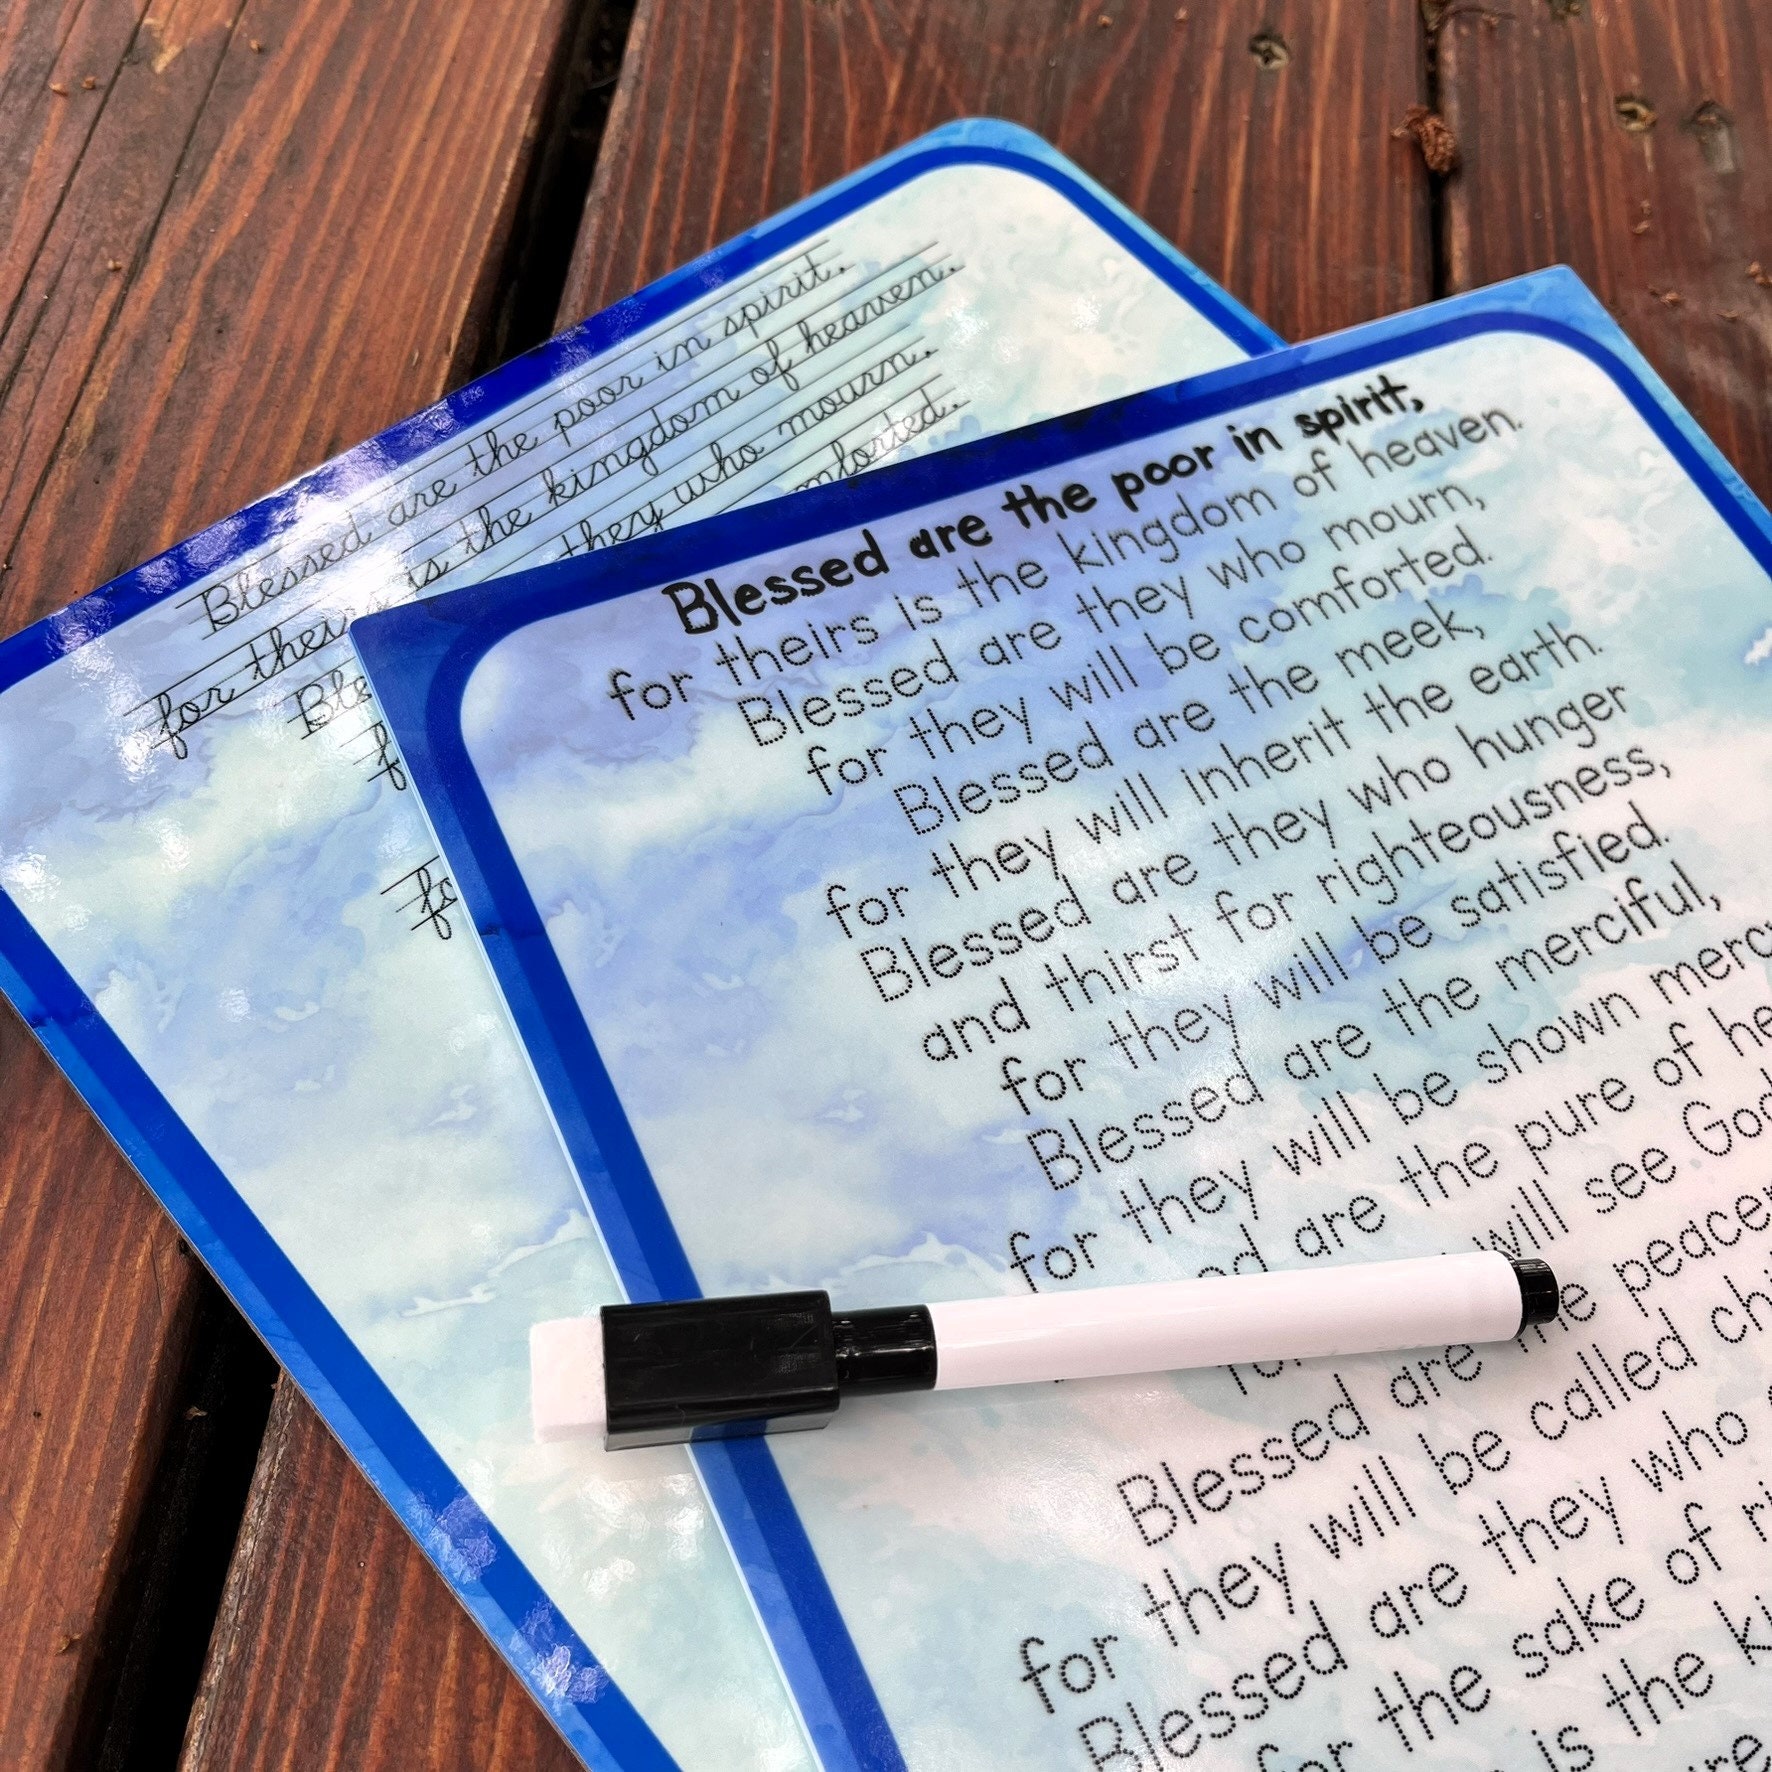 Blessed are the poor in spirit.
for theirs is the kingdom of heaven.
they who mourn.
Blessed are the poor in spirit,
for theirs is the kingdom of heaven.
Blessed are they who mourn,
for they will be comforted.
Blessed are the meek,
for they will inherit the earth.
Blessed are they who hunger
and thirst for righteousness,
for they will be satisfied.
Blessed are the merciful,
for they will be shown mercy
are the pure of
will see God
Blessed are the
for they will be called
Blessed are they who
for the sake of
is the